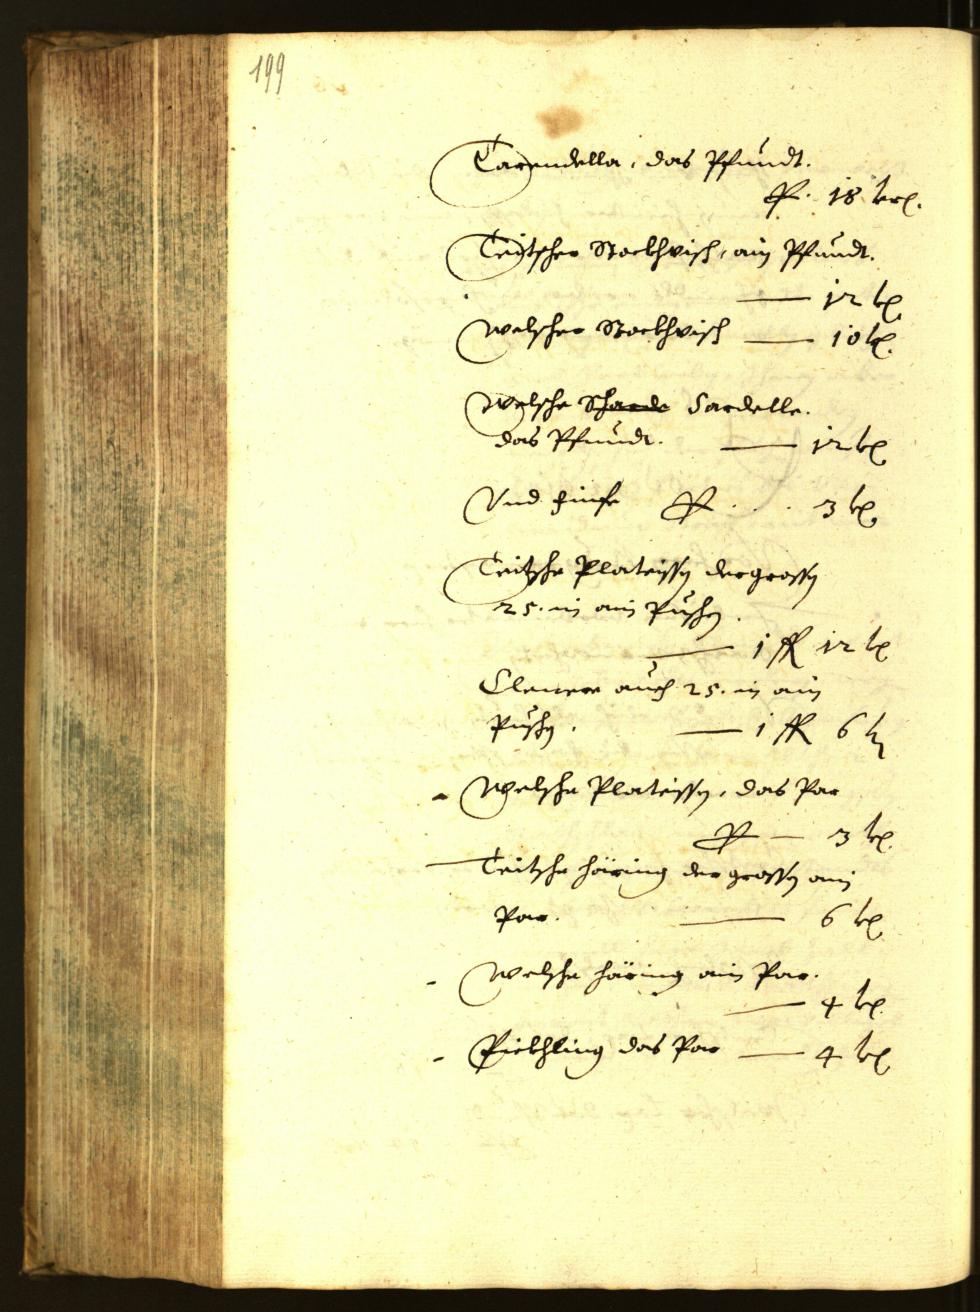 199
Tarendella, das Pfundt.
ff. 18 krr.
Teitscher Stockhvisch, ain Pfundt.
— 12 kr.
Welscher Stockhvisch — 10 kr.
Welsche Sardelle.
das Pfundt. — 12 kr.
Vnd ff . . 3 kr.
Teitsche Plateissn der grossn
25. in ain Puschn.
— 1 fl 12 kr
Clenere auch 25. in ain
Puschn. — 1 fl 6 kr
Welsche Plateissn, das Par
ff — 3 kr.
Teitsche häring der grossn ain
Par. — 6 kr.
Welsche häring ain Par.
— 4 kr.
Pickhling das Par — 4 kr.